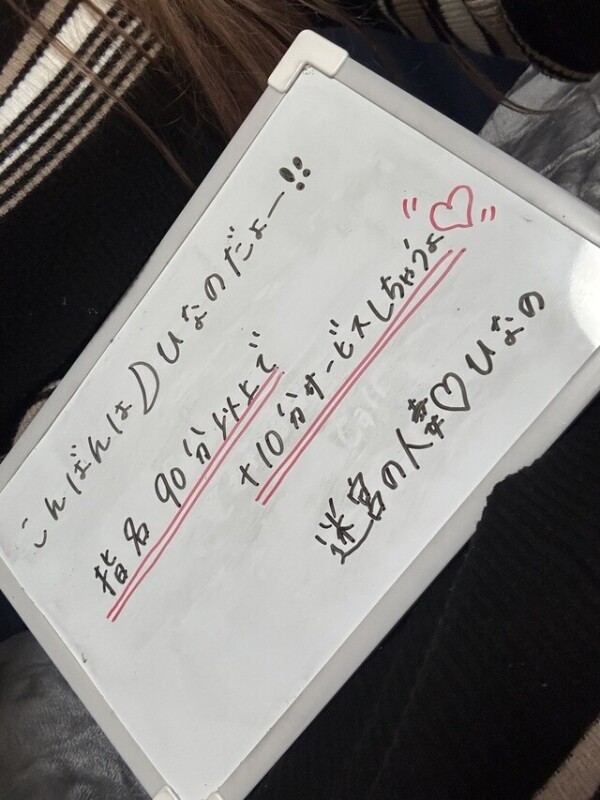 こんばんは☽ひなのだよー!!
指名 90分以上で
+10分サービスしちゃうよ♡
迷宮の人妻♡ひなの